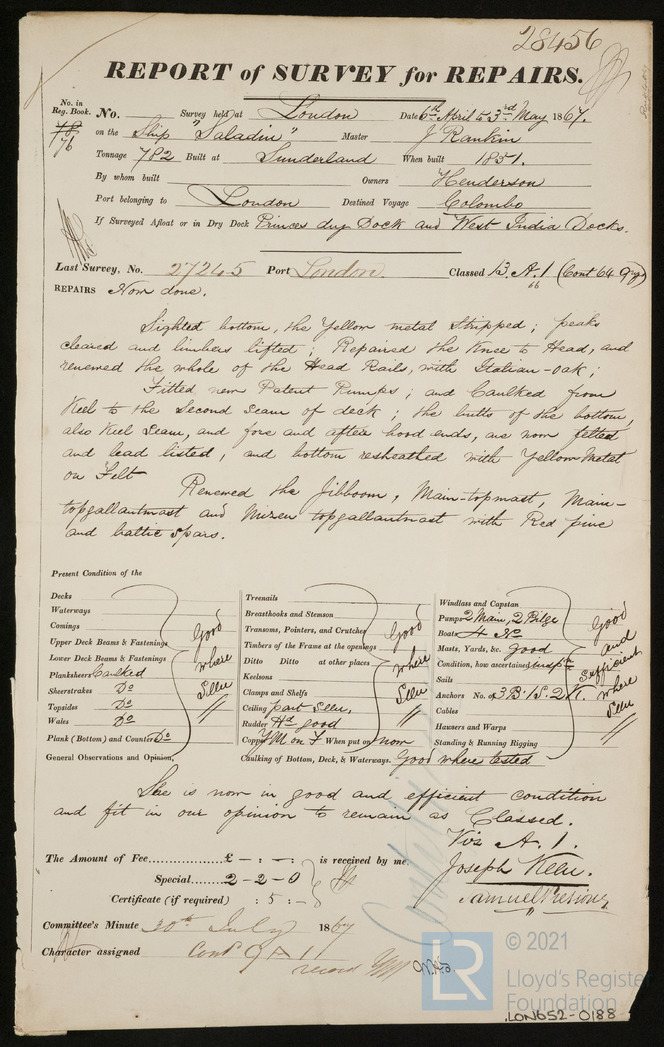 28456
REPORT of SURVEY for REPAIRS.
No. in Reg. Book. No. Survey held at London Date 6th April to 3rd May 1867.
78/76 on the Ship "Saladin" Master J Rankin
Tonnage 782 Built at Sunderland When built 1851.
By whom built Owners Henderson
Port belonging to London Destined Voyage Colombo
If Surveyed Afloat or in Dry Dock Princes dry Dock and West India Docks.
Last Survey, No. 27245 Port London. Classed 13 A.1 (Cont 64 9 yrs)
66
REPAIRS Now done.
Sighted bottom, the Yellow metal Stripped; peaks
cleared and limbers lifted; Repaired the Knee to Head, and
renewed the whole of the Head Rails, with Italian-oak;
Fitted new Patent Pumps; and Caulked from
Keel to the Second Seam of deck; the butts of the bottom,
also Keel Seam, and fore and after hood ends, are now felted
and lead listed, and bottom resheathed with Yellow Metal
on Felt
Renewed the Jibboom, Main-topmast, Main-
topgallantmast and Mizen topgallantmast with Red pine
and baltic Spars.
Present Condition of the
Decks
Waterways
Comings
Upper Deck Beams & Fastenings
Lower Deck Beams & Fastenings
Planksheers Caulked
Sheerstrakes Do
Topsides Do
Wales Do
Plank (Bottom) and Counters Do
Good where Seen "
Treenails
Breasthooks and Stemson
Transoms, Pointers, and Crutches
Timbers of the Frame at the openings
Ditto Ditto at other places
Keelsons
Clamps and Shelfs
Ceiling part Seen,
Rudder Hd good
Copper YM on F When put on now
Good where Seen "
Windlass and Capstan
Pumps 2 Main, 2 Bilge
Boats 4 No
Masts, Yards, &c. good
Condition, how ascertained
Sails
Anchors No. of 3 B. 1 S. 2 K.
Cables
Hawsers and Warps
Standing & Running Rigging
Good and Sufficient where Seen "
General Observations and Opinion, Caulking of Bottom, Deck, & Waterways. Good where tested
She is now in good and efficient condition
and fit in our opinion to remain as Classed.
Viz A. 1.
The Amount of Fee £ - : - : is received by me,
Joseph Keen.
Special 2 - 2 - 0
Certificate (if required) : 5 : -
Committee's Minute 30th July 1867
Character assigned Cont 9 A 1
record
© 2021
LR
Lloyd's Register
Foundation
LON652-0188